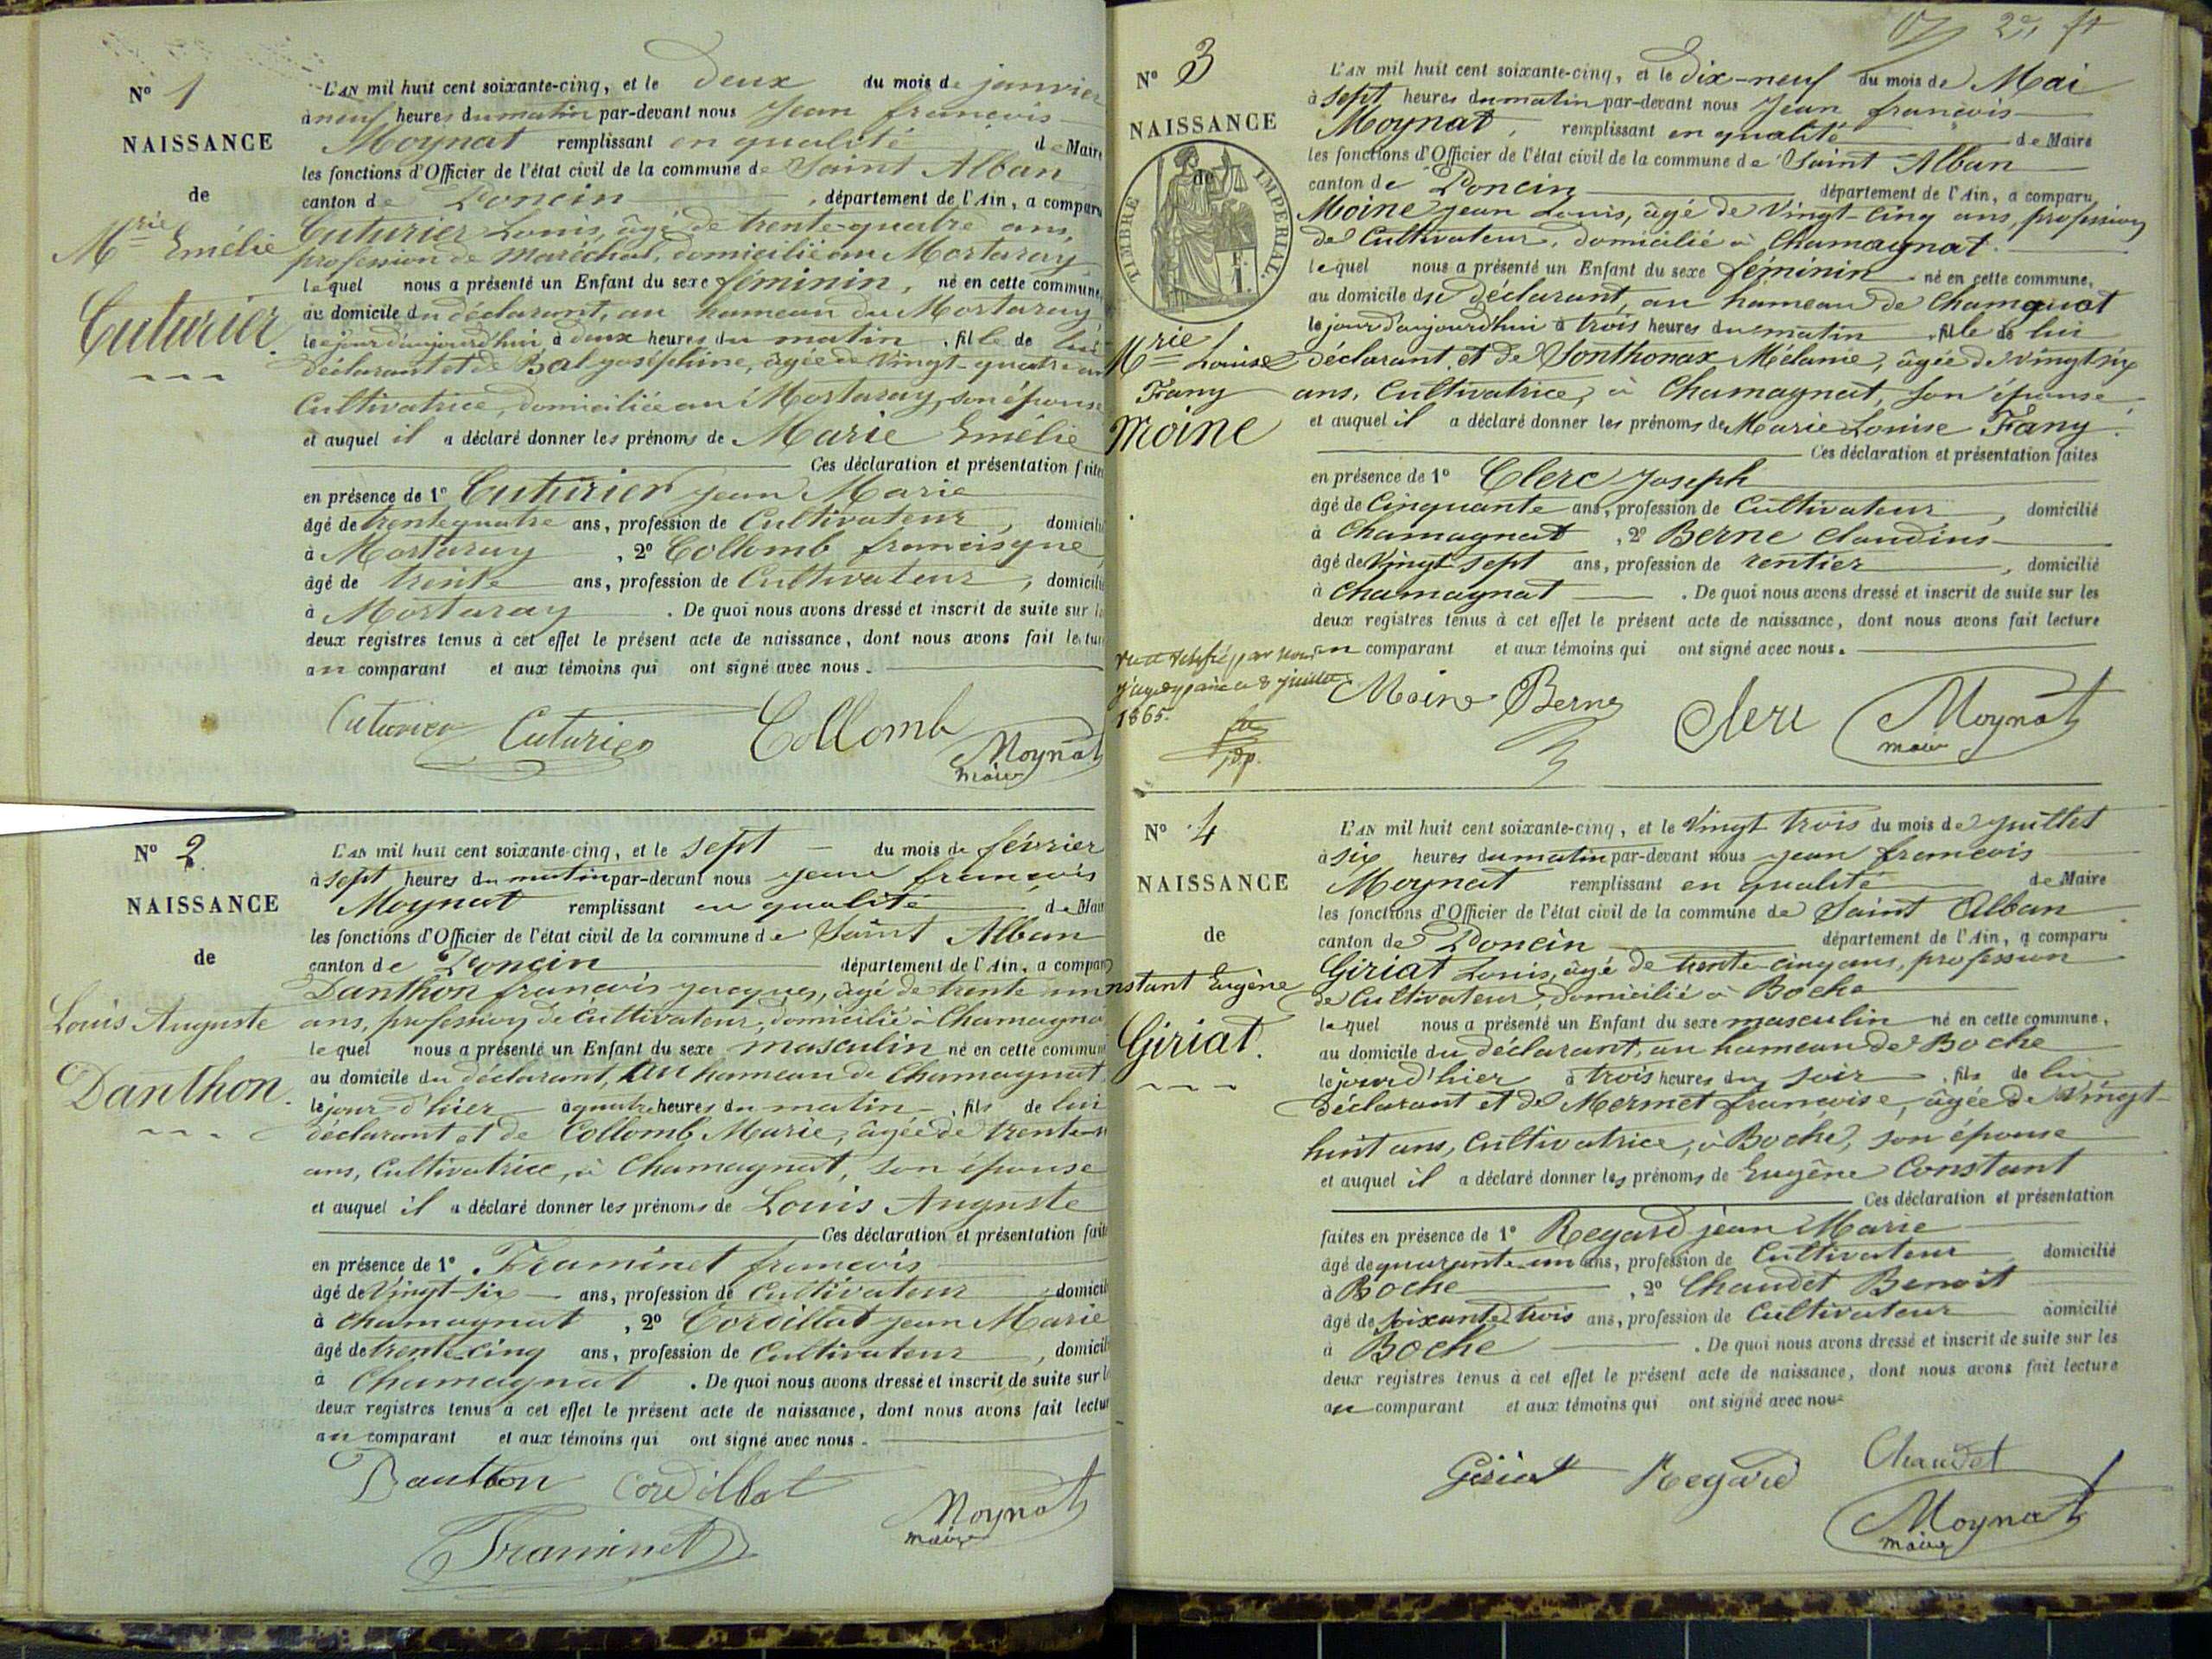 N° 1
NAISSANCE
de
Mrie Emélie
Cuturier.
L'AN mil huit cent soixante-cinq, et le deux du mois de janvier
à neuf heures du matin par-devant nous Jean francois
Moynat remplissant en qualité de Maire
les fonctions d'Officier de l'état civil de la commune de Saint Alban
canton de Poncin, département de l'Ain, a comparu
Cuturier Louis, âgé de trente-quatre ans,
profession de Maréchal, domicilié au Mortaray
lequel nous a présenté un Enfant du sexe féminin, né en cette commune,
au domicile du déclarant, au hameau du Mortaray,
le jour d'aujourd'hui à deux heures du matin, fille de lui
déclarant et de Bal joséphine, âgée de Vingt-quatre an
Cultivatrice, domiciliée au Mortaray, son épouse
et auquel il a déclaré donner les prénoms de Marie Emélie
Ces déclaration et présentation faites
en présence de 1° Cuturier jean Marie
âgé de trente quatre ans, profession de Cultivateur, domicilié
à Mortaray, 2° Collomb francisque
âgé de trente ans, profession de Cultivateur, domicilié
à Mortaray. De quoi nous avons dressé et inscrit de suite sur le
deux registres tenus à cet effet le présent acte de naissance, dont nous avons fait lecture
au comparant et aux témoins qui ont signé avec nous.
Cuturier Cuturier Collomb Moynat
maire
N° 2.
NAISSANCE
de
Louis Auguste
Danthon.
L'AN mil huit cent soixante-cinq, et le sept du mois de février
à sept heures du matin par-devant nous jean francois
Moynat remplissant en qualité de Mair
les fonctions d'Officier de l'état civil de la commune de Saint Alban
canton de Poncin département de l'Ain, a comparu
Danthon francois jacques, âgé de trente un
ans, profession de Cultivateur, domicilié à Chamagna
lequel nous a présenté un Enfant du sexe masculin né en cette commune
au domicile du déclarant, au hameau de Chamagnat
le jour d'hier à quatre heures du matin, fils de lui
déclarant et de Collomb Marie, âgée de trente-
ans, Cultivatrice, à Chamagnat, son épouse
et auquel il a déclaré donner les prénoms de Louis Auguste
Ces déclaration et présentation faite
en présence de 1° Framinet francois
âgé de Vingt-six ans, profession de Cultivateur domicil
à Chamagnat, 2° Cordillat jean Marie
âgé de trente-cinq ans, profession de Cultivateur, domicil
à Chamagnat. De quoi nous avons dressé et inscrit de suite sur l
deux registres tenus à cet effet le présent acte de naissance, dont nous avons fait lectur
au comparant et aux témoins qui ont signé avec nous.
Danthon Cordillat Moynat
maire
Framinet
N° 3
NAISSANCE
de
TIMBRE IMPERIAL
Mrie Louise
Fany
Moine
L'AN mil huit cent soixante-cinq, et le dix-neuf du mois de Mai
à sept heures du matin par-devant nous Jean francois
Moynat, remplissant en qualité de Maire
les fonctions d'Officier de l'état civil de la commune de Saint Alban
canton de Poncin département de l'Ain, a comparu
Moine jean Louis, âgé de Vingt-cinq ans, profession
de Cultivateur, domicilié à Chamagnat.
lequel nous a présenté un Enfant du sexe féminin né en cette commune,
au domicile du déclarant, au hameau de Chamagnat
le jour d'aujourd'hui à trois heures du matin, fille de lui
déclarant et de Sonthonax Mélanie, âgée de vingt six
ans, Cultivatrice, à Chamagnat, son épouse
et auquel il a déclaré donner les prénoms de Marie Louise Fany.
Ces déclaration et présentation faites
en présence de 1° Clerc Joseph
âgé de Cinquante ans, profession de Cultivateur, domicilié
à Chamagnat, 2° Berne Claudius
âgé de Vingt sept ans, profession de rentier, domicilié
à Chamagnat. De quoi nous avons dressé et inscrit de suite sur les
deux registres tenus à cet effet le présent acte de naissance, dont nous avons fait lecture
au comparant et aux témoins qui ont signé avec nous.
juillet
1865.
Moine Berne Clerc Moynat
maire
N° 4
NAISSANCE
de
nstant Eugène
Giriat.
L'AN mil huit cent soixante-cinq, et le Vingt trois du mois de juillet
à six heures du matin par-devant nous jean francois
Moynat remplissant en qualité de Maire
les fonctions d'Officier de l'état civil de la commune de Saint Alban
canton de Poncin département de l'Ain, a comparu
Giriat Louis, âgé de trente-cinq ans, profession
de Cultivateur, domicilié à Boche
lequel nous a présenté un Enfant du sexe masculin né en cette commune,
au domicile du déclarant, au hameau de Boche
le jour d'hier à trois heures du soir, fils de lui
déclarant et de Mermet francoise, âgée de Vingt-
huit ans, Cultivatrice, à Boche, son épouse
et auquel il a déclaré donner les prénoms de Eugène Constant
Ces déclaration et présentation
faites en présence de 1° Regard jean Marie
âgé de quarante-un ans, profession de Cultivateur domicilié
à Boche, 2° Chaudet Benoit
âgé de soixante trois ans, profession de Cultivateur domicilié
à Boche. De quoi nous avons dressé et inscrit de suite sur les
deux registres tenus à cet effet le présent acte de naissance, dont nous avons fait lecture
au comparant et aux témoins qui ont signé avec nous
Giriat Regard Chaudet
Moynat
maire